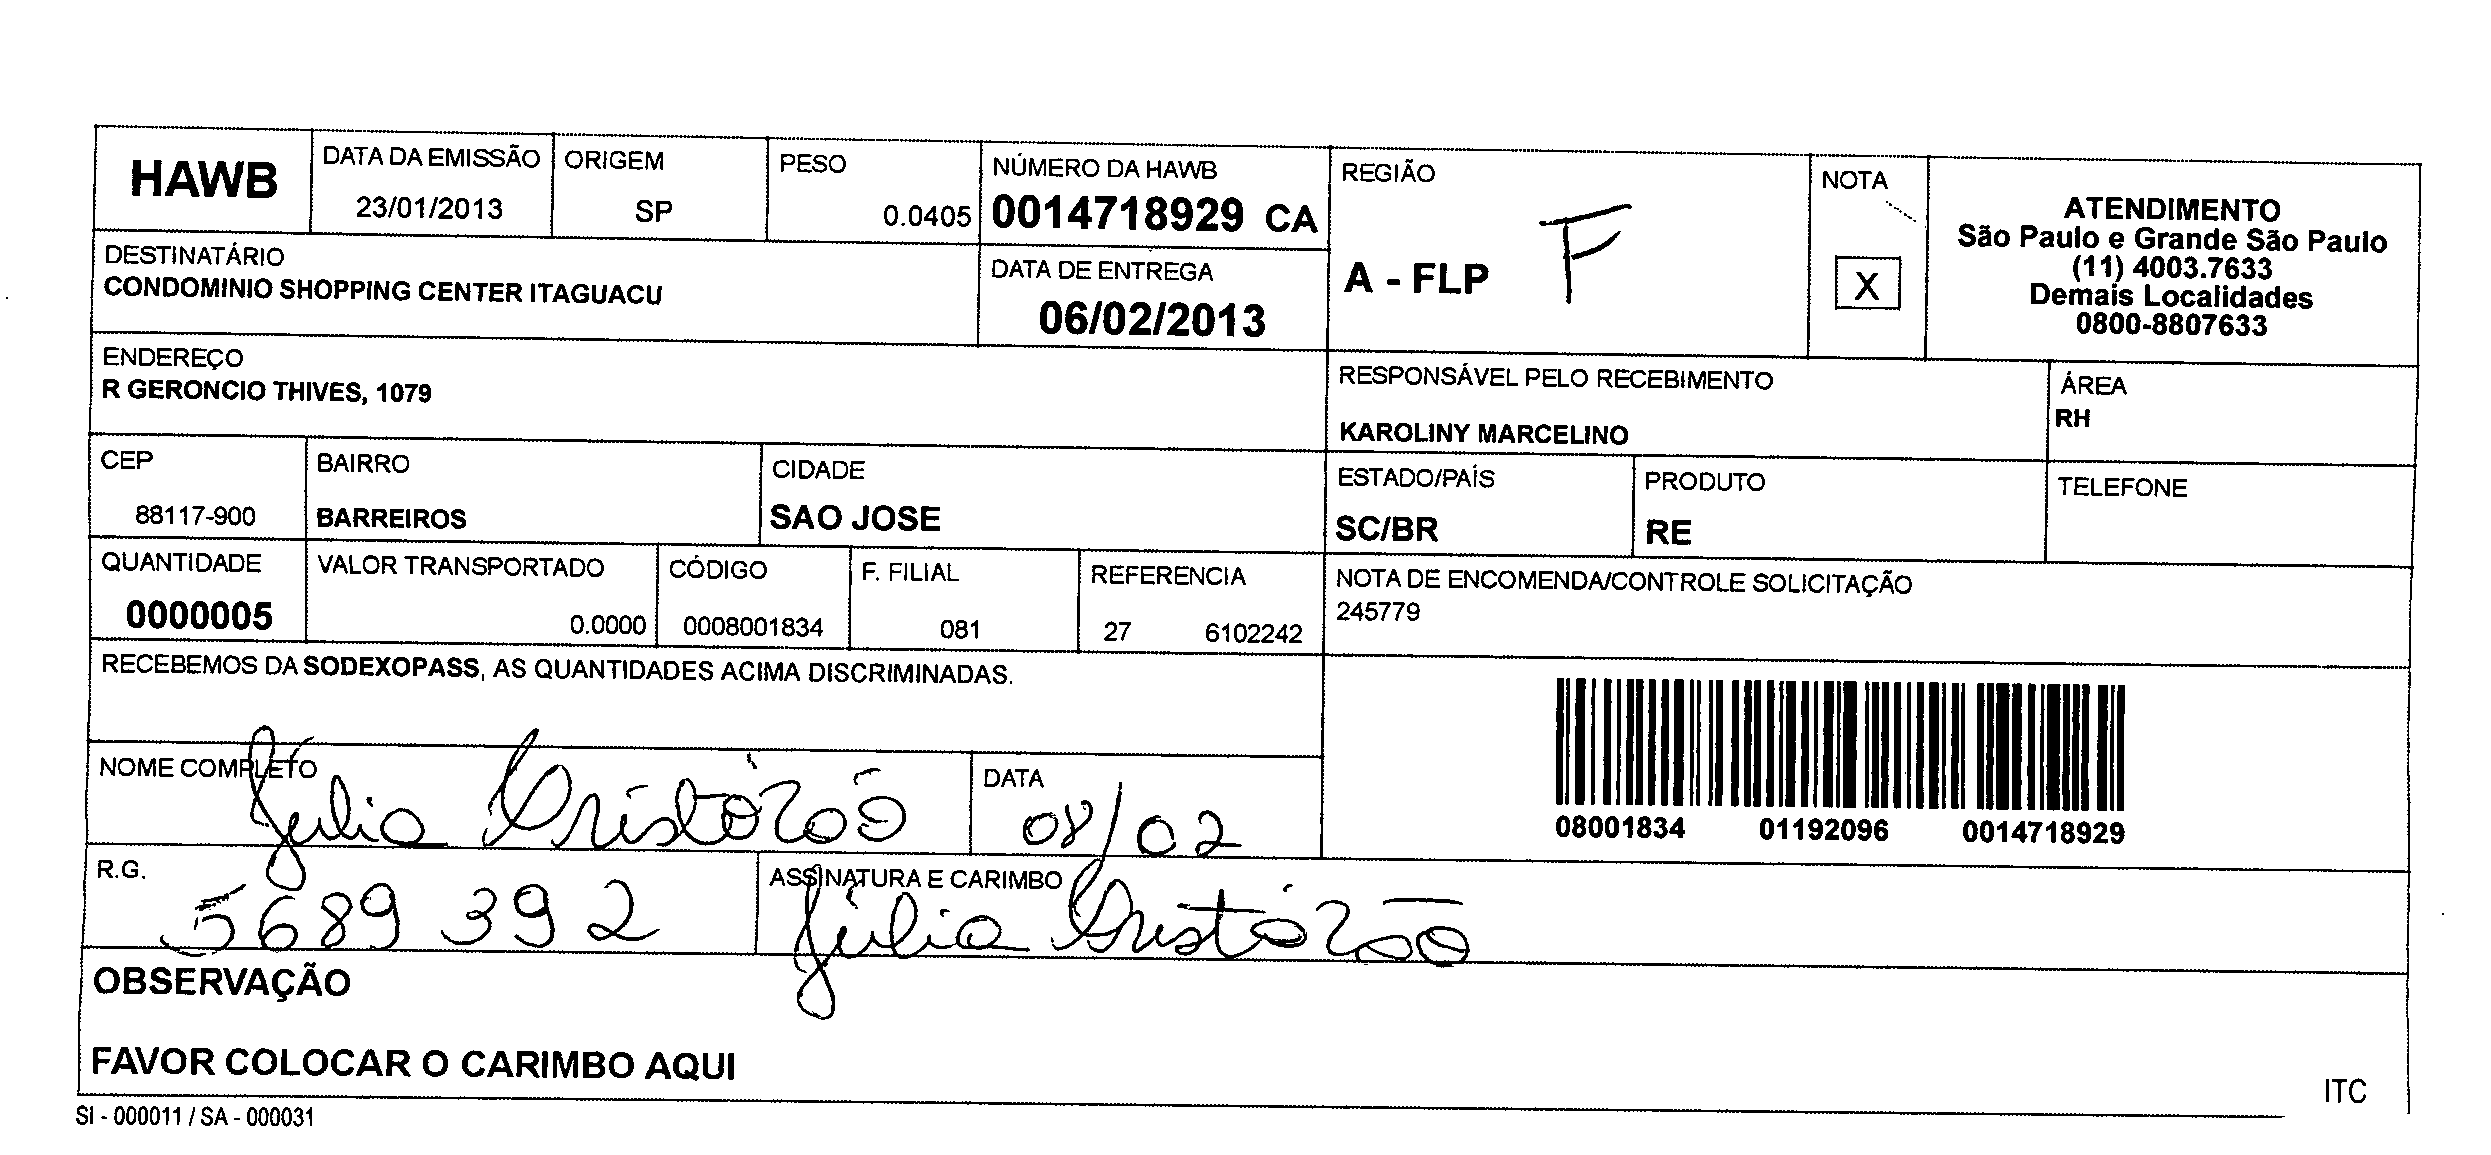 HAWB
DATA DA EMISSÃO
23/01/2013
ORIGEM
SP
PESO
0.0405
NÚMERO DA HAWB
0014718929 CA
REGIÃO
A - FLP
F
NOTA
X
ATENDIMENTO
São Paulo e Grande São Paulo
(11) 4003.7633
Demais Localidades
0800-8807633
DESTINATÁRIO
CONDOMINIO SHOPPING CENTER ITAGUACU
DATA DE ENTREGA
06/02/2013
ENDEREÇO
R GERONCIO THIVES, 1079
RESPONSÁVEL PELO RECEBIMENTO
KAROLINY MARCELINO
ÁREA
RH
CEP
88117-900
BAIRRO
BARREIROS
CIDADE
SAO JOSE
ESTADO/PAÍS
SC/BR
PRODUTO
RE
TELEFONE
QUANTIDADE
0000005
VALOR TRANSPORTADO
0.0000
CÓDIGO
0008001834
F. FILIAL
081
REFERENCIA
27 6102242
NOTA DE ENCOMENDA/CONTROLE SOLICITAÇÃO
245779
RECEBEMOS DA SODEXOPASS, AS QUANTIDADES ACIMA DISCRIMINADAS.
08001834 01192096 0014718929
NOME COMPLETO
Júlia
DATA
08/02
R.G.
5689392
ASSINATURA E CARIMBO
Júlia
OBSERVAÇÃO
FAVOR COLOCAR O CARIMBO AQUI
ITC
SI - 000011 / SA - 000031